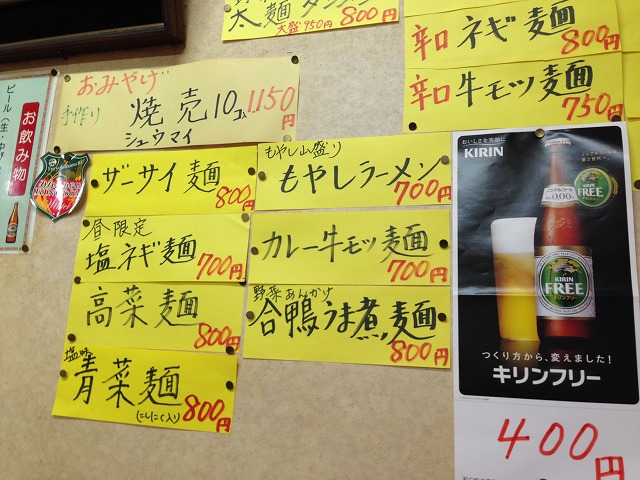 太麺タンメン
大盛950円 800円
辛口 ネギ麺
800円
辛口 牛モツ麺
750円
おみやげ
手作り 焼売10コ 1150円
シュウマイ
お飲み物
ビール(生・中び
ザーサイ麺
800円
もやし山盛り
もやしラーメン
700円
昼限定
塩ネギ麺
700円
カレー牛モツ麺
700円
高菜麺
800円
野菜あんかけ
合鴨うま煮麺
800円
塩味
青菜麺
(にんにく入り) 800円
おいしさを笑顔に
KIRIN
ノンアルコール
0.00%
KIRIN
FREE
つくり方から、変えました!
キリンフリー
400円